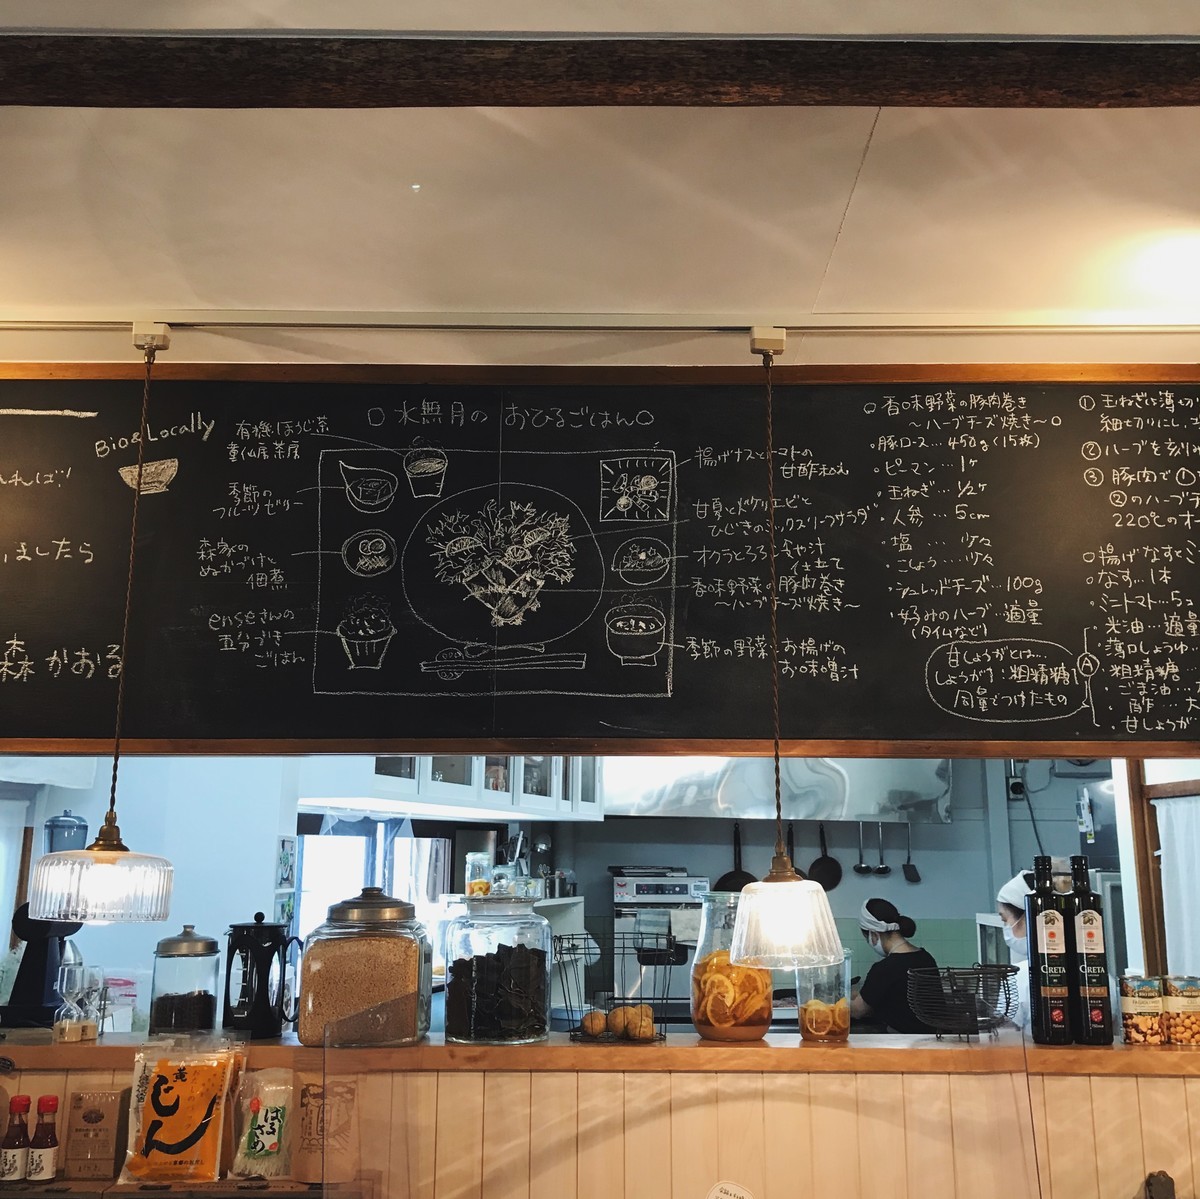 Bio & Locally
 れば!
いましたら
森 かおる
○水無月の おひるごはん○
有機ほうじ茶
童仙房茶房
季節の
フルーツゼリー
森家の
ぬかづけと
佃煮
enseさんの
五分づき
ごはん
揚げナスとトマトの
甘酢和え
甘夏と炒りエビと
ひじきのミックスリーフサラダ
オクラとろろ
仕立て
香味野菜の豚肉巻き
〜ハーブチーズ焼き〜
季節の野菜とお揚げの
お味噌汁
○香味野菜の豚肉巻き
〜ハーブチーズ焼き〜○
・豚ロース…450g(15枚)
・ピーマン…1ヶ
・玉ねぎ…1/2ヶ
・人参…5cm
・塩…少々
・こしょう…少々
・シュレッドチーズ…100g
・好みのハーブ…適量
(タイムなど)
甘しょうがとは…
しょうが1:粗精糖1
同量でつけたもの
① 玉ねぎは薄切
細切りにし、
② ハーブを刻み
③ 豚肉で①
②のハーブ
220℃のオ
○揚げなすとミ
・なす…1本
・ミニトマト…5
・米油…適量
・薄口しょうゆ…
・粗精糖…
・ごま油…
・酢…大
・甘しょうが
Ⓐ
CRETA
CRETA
黄
じん
はるさめ